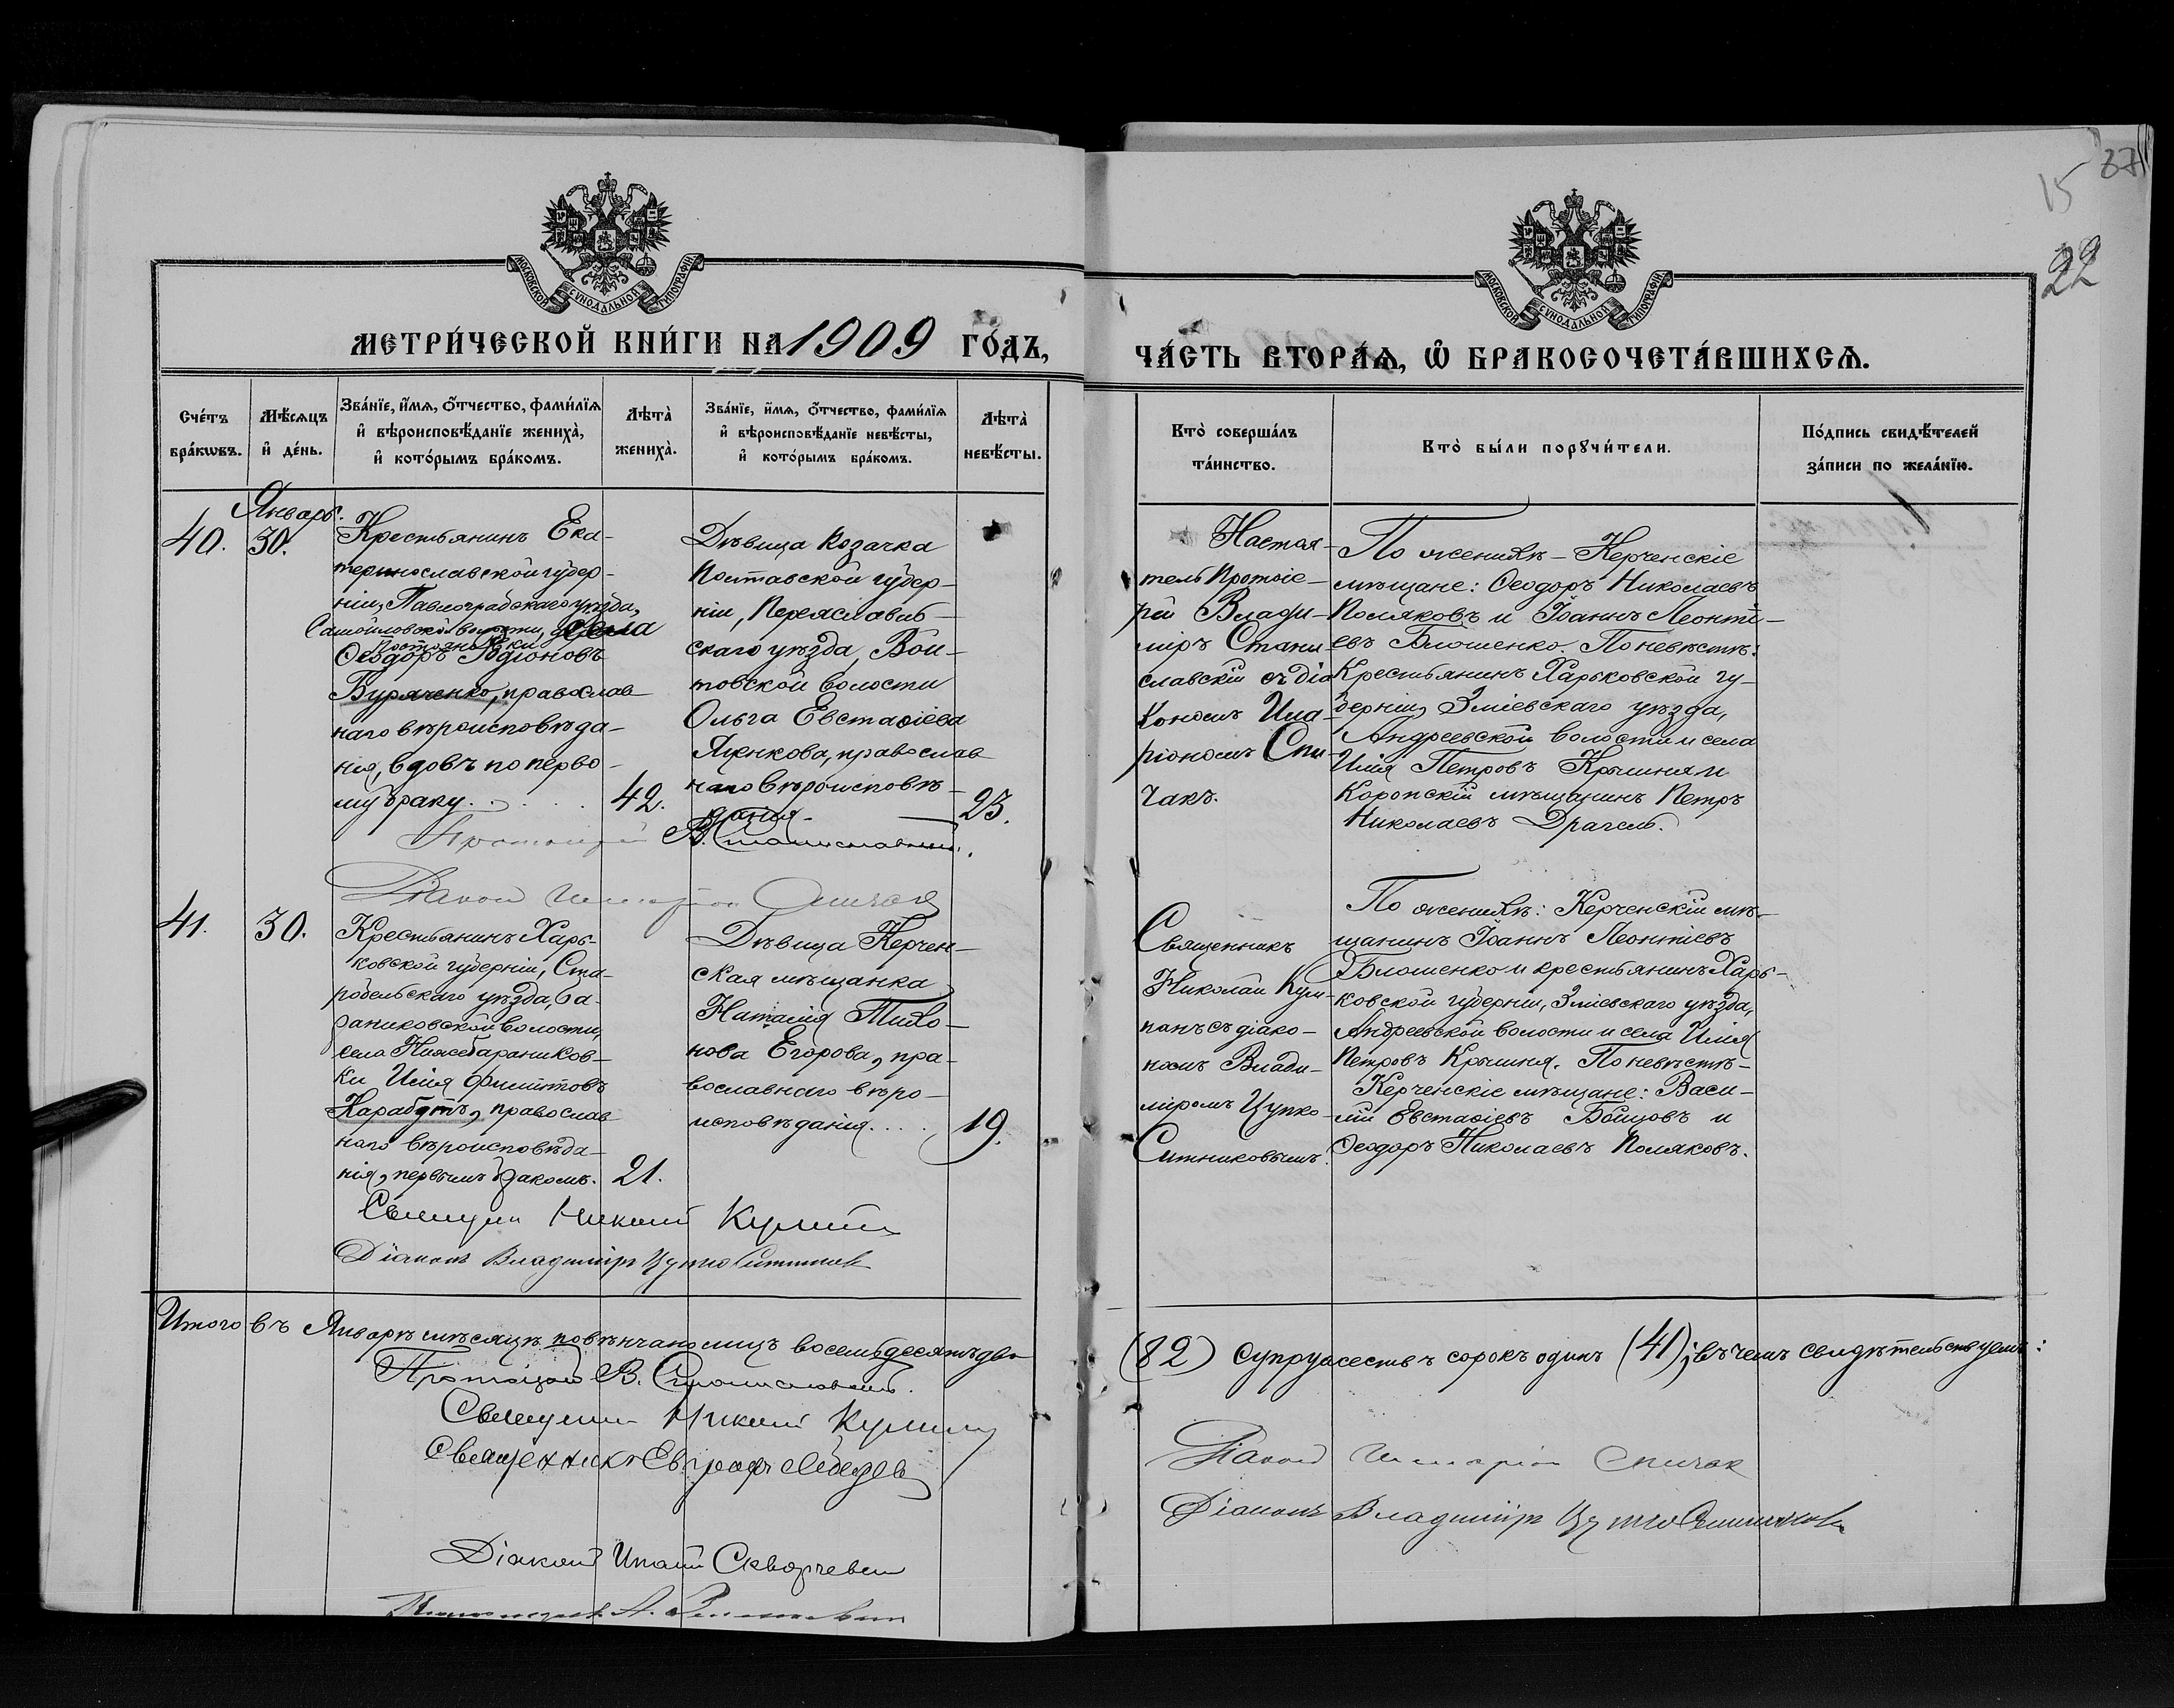 МОСКОВСКОЙ СѴНОДАЛЬНОЙ ТИПОГРАФІИ
МЕТРИ́ЧЕСКОЙ КНИ́ГИ НА 1909 ГО́ДЪ,
Сче́тъ бра́кѡвъ.
Мѣ́сяцъ и҆ де́нь.
Зва́нїе, и҆́мѧ, ѻ҆́тчество, фами́лїѧ
и҆ вѣроисповѣ́данїе жениха̀,
и҆ кото́рымъ бра́комъ.
Лѣта̀ жениха̀.
Зва́нїе, и҆́мѧ, ѻ҆́тчество, фами́лїѧ
и҆ вѣроисповѣ́данїе невѣ́сты,
и҆ кото́рымъ бра́комъ.
Лѣта̀ невѣ́сты.
40.
Январь.
30.
Крестьянинъ Ека-
теринославской губер-
ніи, Павлоградскаго уѣзда,
Самойловской волости, села
Ѳеодоръ Родіоновъ
Буряченко, православ
наго вѣроисповѣда-
нія, вдовъ по перво-
му браку.
42.
Дѣвица козачка
Полтавской губер-
ніи, Переяслав-
скаго уѣзда, Вой-
товской волости
Ольга Евстаѳіева
Яценкова, православ
наго вѣроисповѣ-
данія.
23.
Протоіерей В. Станиславскій.
Діаконъ Иларіонъ Спичакъ
41.
30.
Крестьянинъ Харь-
ковской губерніи, Ста-
робельскаго уѣзда, Ба-
раниковской волости,
села Нижебараников-
ки Илія Филиповъ
Карабутъ, православ
наго вѣроисповѣда-
нія, первымъ бракомъ.
21.
Дѣвица Керчен-
ская мѣщанка
Наталія Тихо-
нова Егорова, пра-
вославнаго вѣро-
исповѣданія....
19.
Священникъ Николай
Діаконъ Владиміръ Цупко Ситниковъ
Итого въ Январѣ мѣсяцѣ повѣнчано лицъ восемьдесятъ два
Протоіерей В. Станиславскій.
Священникъ Николай
Священникъ Евграфъ Лебедевъ
Діаконъ
15
37
22
МОСКОВСКОЙ СѴНОДАЛЬНОЙ ТИПОГРАФІИ
ЧА́СТЬ ВТОРА́Ѧ, Ѡ҆ БРАКОСОЧЕТА́ВШИХСѦ.
Кто̀ соверша́лъ та́инство.
Кто̀ бы́ли порꙋчи́тели.
По́дпись свидѣ́телей
за́писи по жела́нїю.
Настоя-
тель Протоіе-
рей Влади-
міръ Стани
славскій съ діа
кономъ Ила-
ріономъ Спи-
чакъ.
По женихѣ – Керченскіе
мѣщане: Ѳеодоръ Николаевъ
Поляковъ и Іоаннъ Леонті-
евъ Блошенко. По невѣстѣ:
Крестьянинъ Харьковской гу-
берніи, Зміевскаго уѣзда,
Андреевской волости и села
Илія Петровъ Крышня и
Коропскій мѣщанинъ Петръ
Николаевъ Драгель.
Священникъ
Николай
панъ съ діако-
номъ Влади-
міромъ Цупко-
Ситниковымъ.
По женихѣ: Керченскій мѣ-
щанинъ Іоаннъ Леонтіевъ
Блошенко и крестьянинъ Харь-
ковской губерніи, Зміевскаго уѣзда,
Андреевской волости и села Илія
Петровъ Крышня. По невѣстѣ-
Керченскіе мѣщане: Васи-
лій Евстаѳіевъ Бойцовъ и
Ѳеодоръ Николаевъ Поляковъ.
(82) супружествъ сорокъ одинъ (41); въ чемъ свидѣтельствуемъ:
Діаконъ Иларіонъ Спичакъ
Діаконъ Владиміръ Цупко Ситниковъ